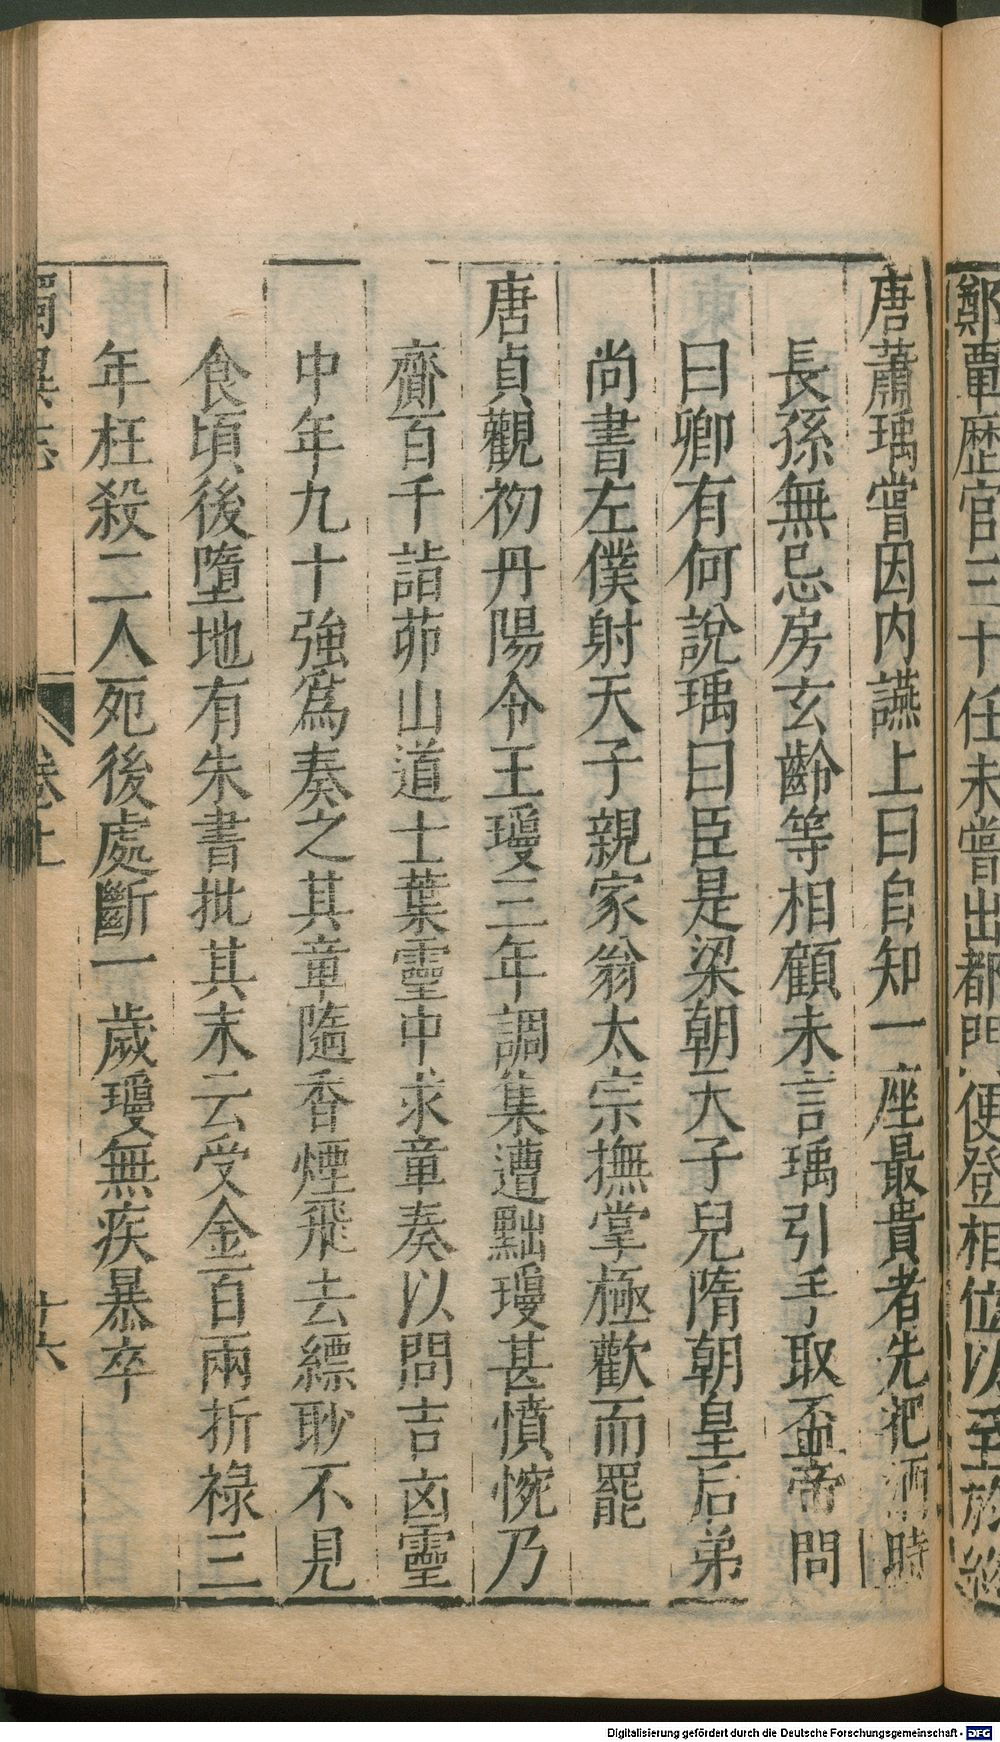 鄭覃歴官三十任未嘗出都門便登相位以至於終
唐蕭瑀嘗因内讌上曰自知一座最貴者先把酒時
長孫無忌房玄齡等相顧未言瑀引手取盃帝問
曰卿有何說瑀曰臣是梁朝天子兒隋朝皇后弟
尚書左僕射天子親家翁太宗撫掌極歡而罷
唐貞觀初丹陽令王瓊三年調集遭黜瓊甚憤惋乃
齎百千詣茆山道士葉靈中求章奏以問吉凶靈
中年九十強爲奏之其章隨香煙飛去縹眇不見
食頃後墮地有朱書批其末云受金百兩折祿三
年枉殺二人死後處斷一歲瓊無疾暴卒
獨異志 卷上 十六
Digitalisierung gefördert durch die Deutsche Forschungsgemeinschaft - DFG